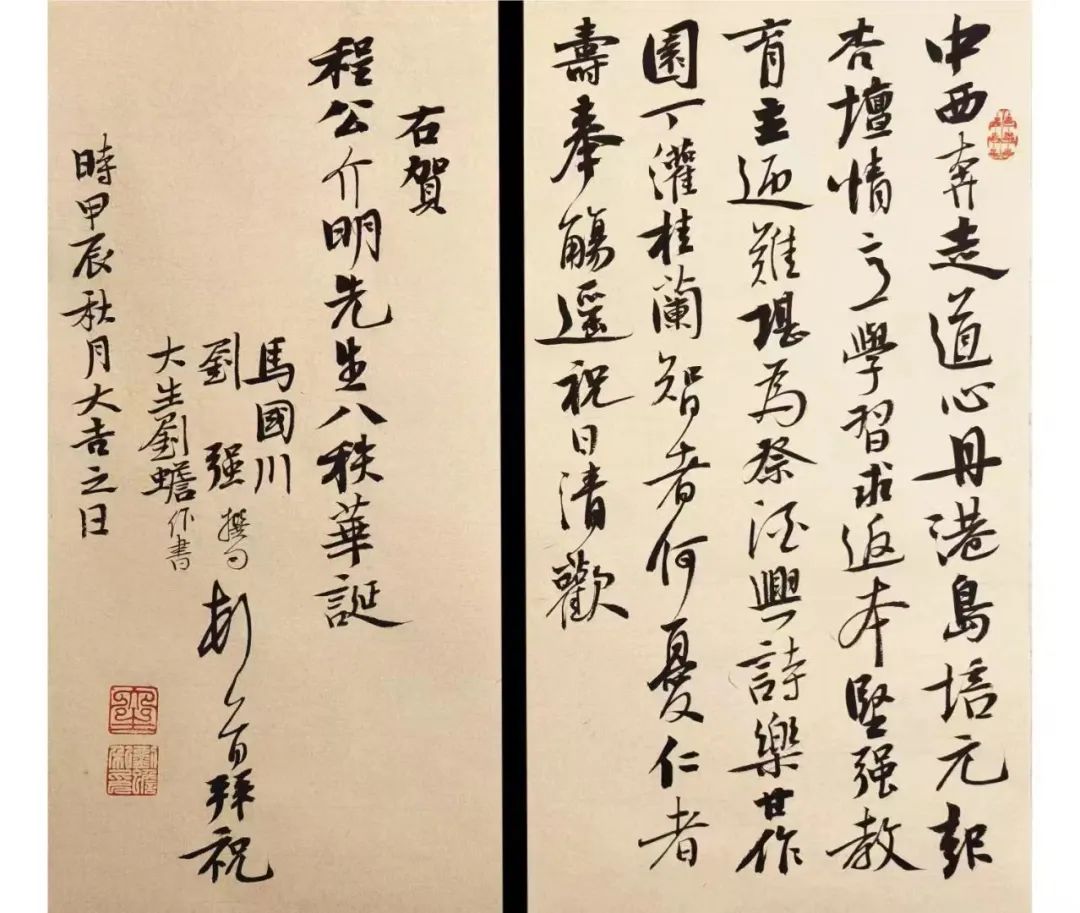 中西奔走道心丹港島培元報
杏壇情學習求返本堅强教
育主迎難堪為祭酒興詩樂甘作
園丁灌桂蘭智者何憂仁者
壽奉觴遥祝日清歡
右賀
程公介明先生八秩華誕
馬國川
劉强 撰句
大生劉蟾作書
頓首拜祝
時甲辰秋月大吉之日